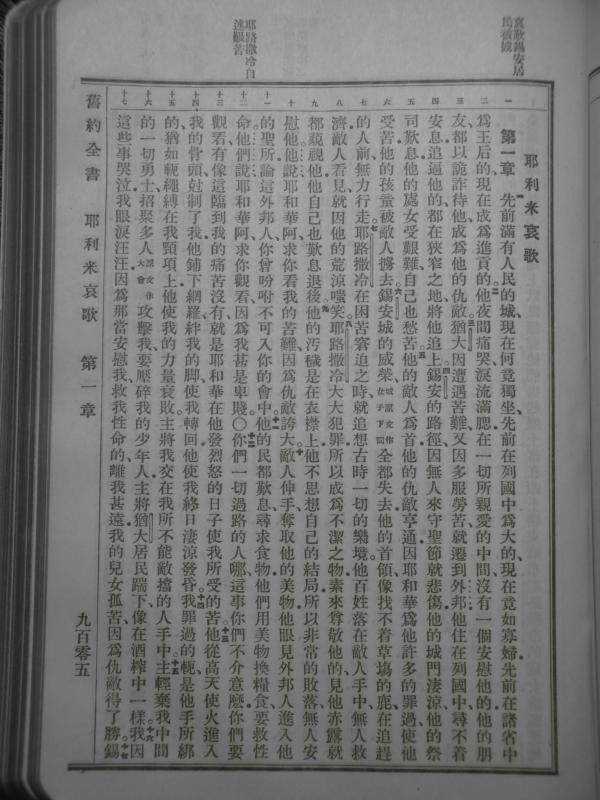 哀歎錫安居
民被擄
耶路撒冷自
述艱苦
耶利米哀歌
一 第一章 先前滿有人民的城現在何竟獨坐先前在列國中爲大的現在竟如寡婦先前在諸省中
二 爲王后的現在成爲進貢的他夜間痛哭淚流滿腮在一切所親愛的中間沒有一個安慰他的他的朋
三 友都以詭詐待他成爲他的仇敵猶大因遭遇苦難又因多服勞苦就遷到外邦他住在列國中尋不着
四 安息追逼他的都在狹窄之地將他追上錫安的路徑因無人來守聖節就悲傷他的城門淒涼他的祭
五 司歎息他的處女受艱難自己也愁苦他的敵人爲首他的仇敵亨通因耶和華爲他許多的罪過使他
六 受苦他的孩童被敵人擄去錫安城的威榮城原文作女子下同全都失去他的首領像找不着草塲的鹿在追趕
七 的人前無力行走耶路撒冷在困苦窘迫之時就追想古時一切的樂境他百姓落在敵人手中無人救
八 濟敵人看見就因他的荒涼嗤笑耶路撒冷大大犯罪所以成爲不潔之物素來尊敬他的見他赤露就
九 都藐視他他自己也歎息退後他的汚穢是在衣襟上他不思想自己的結局所以非常的敗落無人安
十 慰他他說耶和華阿求你看我的苦難因爲仇敵誇大敵人伸手奪取他的美物他眼見外邦人進入他
十一 的聖所論這外邦人你曾吩咐不可入你的會中他的民都歎息尋求食物他們用美物換糧食要救性
十二 命他們說耶和華阿求你觀看因爲我甚是卑賤〇你們一切過路的人哪這事你們不介意麼你們要
十三 觀看有像這臨到我的痛苦沒有就是耶和華在他發烈怒的日子使我所受的苦他從高天使火進入
十四 我的骨頭尅制了我他鋪下網羅絆我的脚使我轉回他使我終日淒涼發昏我罪過的軛是他手所綁
十五 的猶如軛繩縛在我頸項上他使我的力量衰敗主將我交在我所不能敵擋的人手中主輕棄我中間
十六 的一切勇士招聚多人原文作大會攻擊我要壓碎我的少年人主將猶大居民踹下像在酒榨中一樣我因
十七 這些事哭泣我眼淚汪汪因爲那當安慰我救我性命的離我甚遠我的兒女孤苦因爲仇敵得了勝錫
舊約全書 耶利米哀歌 第一章 九百零五